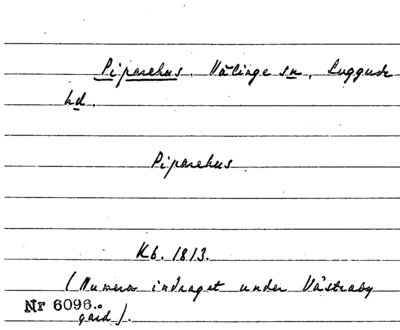 Piparehus. Välinge sn, Luggude
hd.
Piparehus
Kb. 1813.
(Numera indraget under Västraby
Nr 6096.
gård).